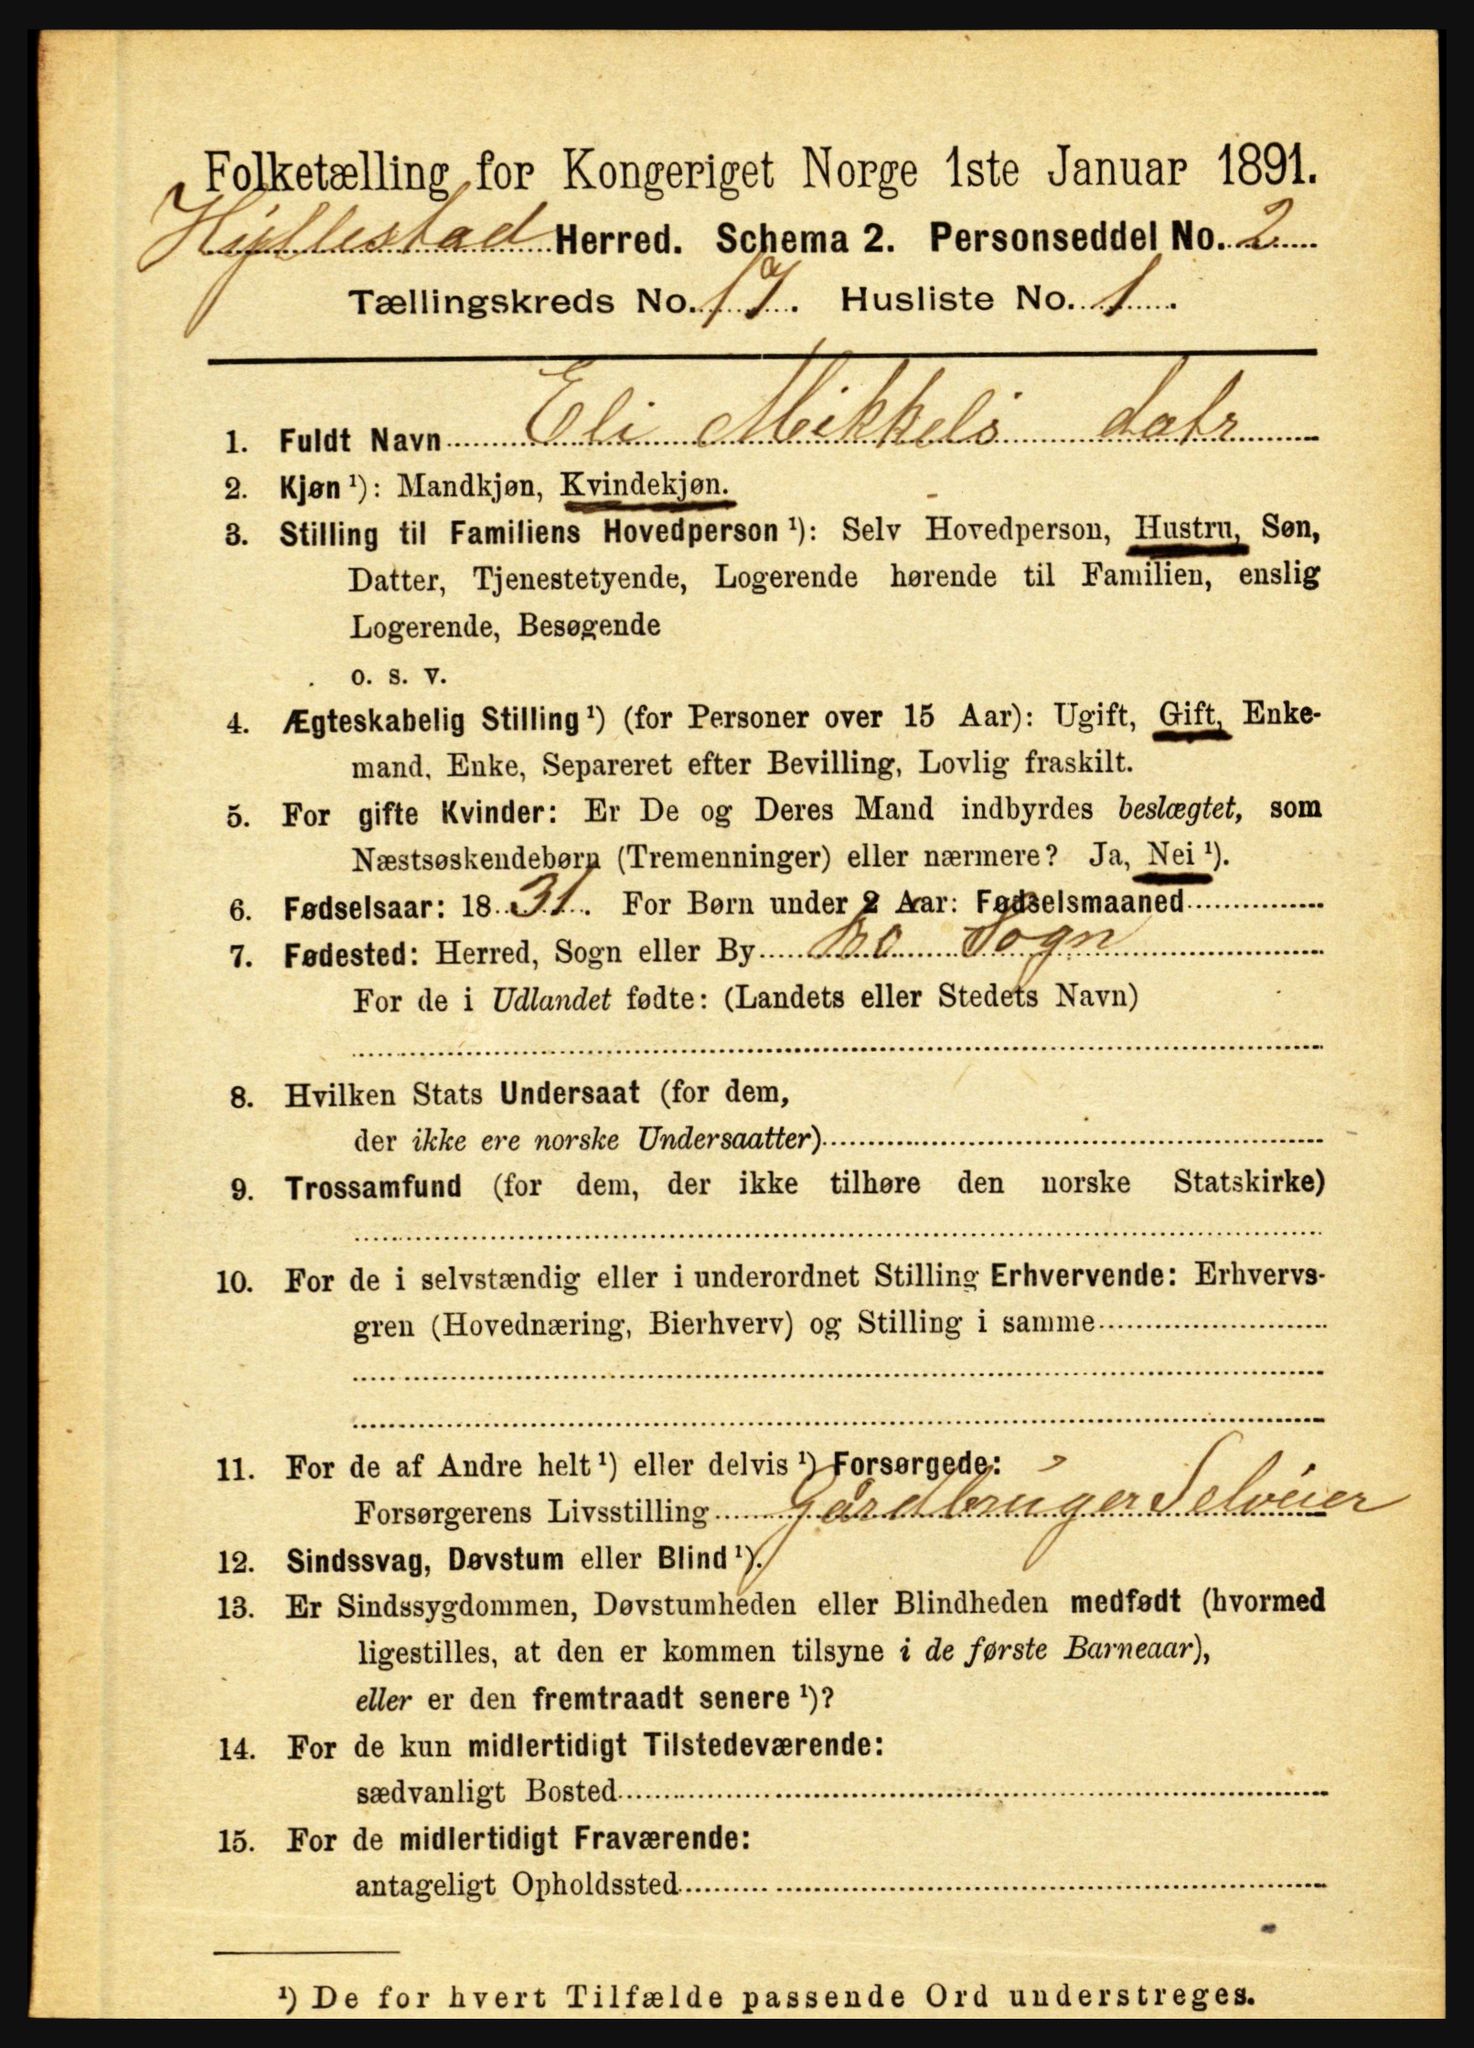 Folketælling for Kongeriget Norge 1ste Januar 1891.
Hyllestad Herred. Schema 2. Personseddel No. 2
Tællingskreds No. 17. Husliste No. 1.
1. Fuldt Navn Eli Mikkels datr
2. Kjøn ¹): Mandkjøn, Kvindekjøn.
3. Stilling til Familiens Hovedperson ¹): Selv Hovedperson, Hustru, Søn,
Datter, Tjenestetyende, Logerende hørende til Familien, enslig
Logerende, Besøgende
o. s. v.
4. Ægteskabelig Stilling ¹) (for Personer over 15 Aar): Ugift, Gift, Enke-
mand, Enke, Separeret efter Bevilling, Lovlig fraskilt.
5. For gifte Kvinder: Er De og Deres Mand indbyrdes beslægtet, som
Næstsøskendebørn (Tremenninger) eller nærmere? Ja, Nei ¹).
6. Fødselsaar: 1831. For Børn under 2 Aar: Fødselsmaaned
7. Fødested: Herred, Sogn eller By Bø Sogn
For de i Udlandet fødte: (Landets eller Stedets Navn)
8. Hvilken Stats Undersaat (for dem,
der ikke ere norske Undersaatter)
9. Trossamfund (for dem, der ikke tilhøre den norske Statskirke)
10. For de i selvstændig eller i underordnet Stilling Erhvervende: Erhvervs-
gren (Hovednæring, Bierhverv) og Stilling i samme
11. For de af Andre helt ¹) eller delvis ¹) Forsørgede:
Forsørgerens Livsstilling Gårdbruger Selveier
12. Sindssvag, Døvstum eller Blind ¹).
13. Er Sindssygdommen, Døvstumheden eller Blindheden medfødt (hvormed
ligestilles, at den er kommen tilsyne i de første Barneaar),
eller er den fremtraadt senere ¹)?
14. For de kun midlertidigt Tilstedeværende:
sædvanligt Bosted
15. For de midlertidigt Fraværende:
antageligt Opholdssted
¹) De for hvert Tilfælde passende Ord understreges.